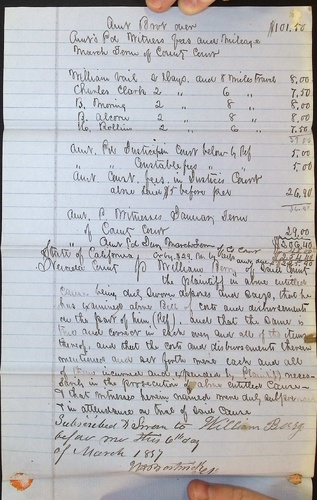 Amt Brot over $101.50
Amt's Pd Witness fees and Mileage
March Term of County Court
William Vail 2 Days. and 8 Miles Travel 8.00
Charles Clark 2 " 6 " 7.50
B. Moring 2 " 8 " 8.00
B. Alcorn 2 " 8 " 8.00
H. Rollins 2 " 6 " 7.50
Amt. Pd Justices Court below by Pef 5.00
" " Constable fees " 5.00
Amt. Court. fees. in Justices Court
above said $5 before per 26.90
Amt. P. Witnesses January Term
of County Court 29.00
Amt Pd March Term of Co Court
State of California
Nevada County William of said County
the Plaintiff in above entitled
Cause being duly sworn deposes and says, that he
has examined above Bill of costs and disbursements
on the part of him Pef. and that the same is
true and correct in each and all of its items
thereof, and that the costs and disbursements therein
mentioned and set forth were each and all
of them incurred and expended by Plaintiff
in the prosecution of above entitled Cause
& that witnesses herein named were duly
& in attendance on trial of said Cause
Subscribed & Sworn to William
before me this 6th day
of March 1857